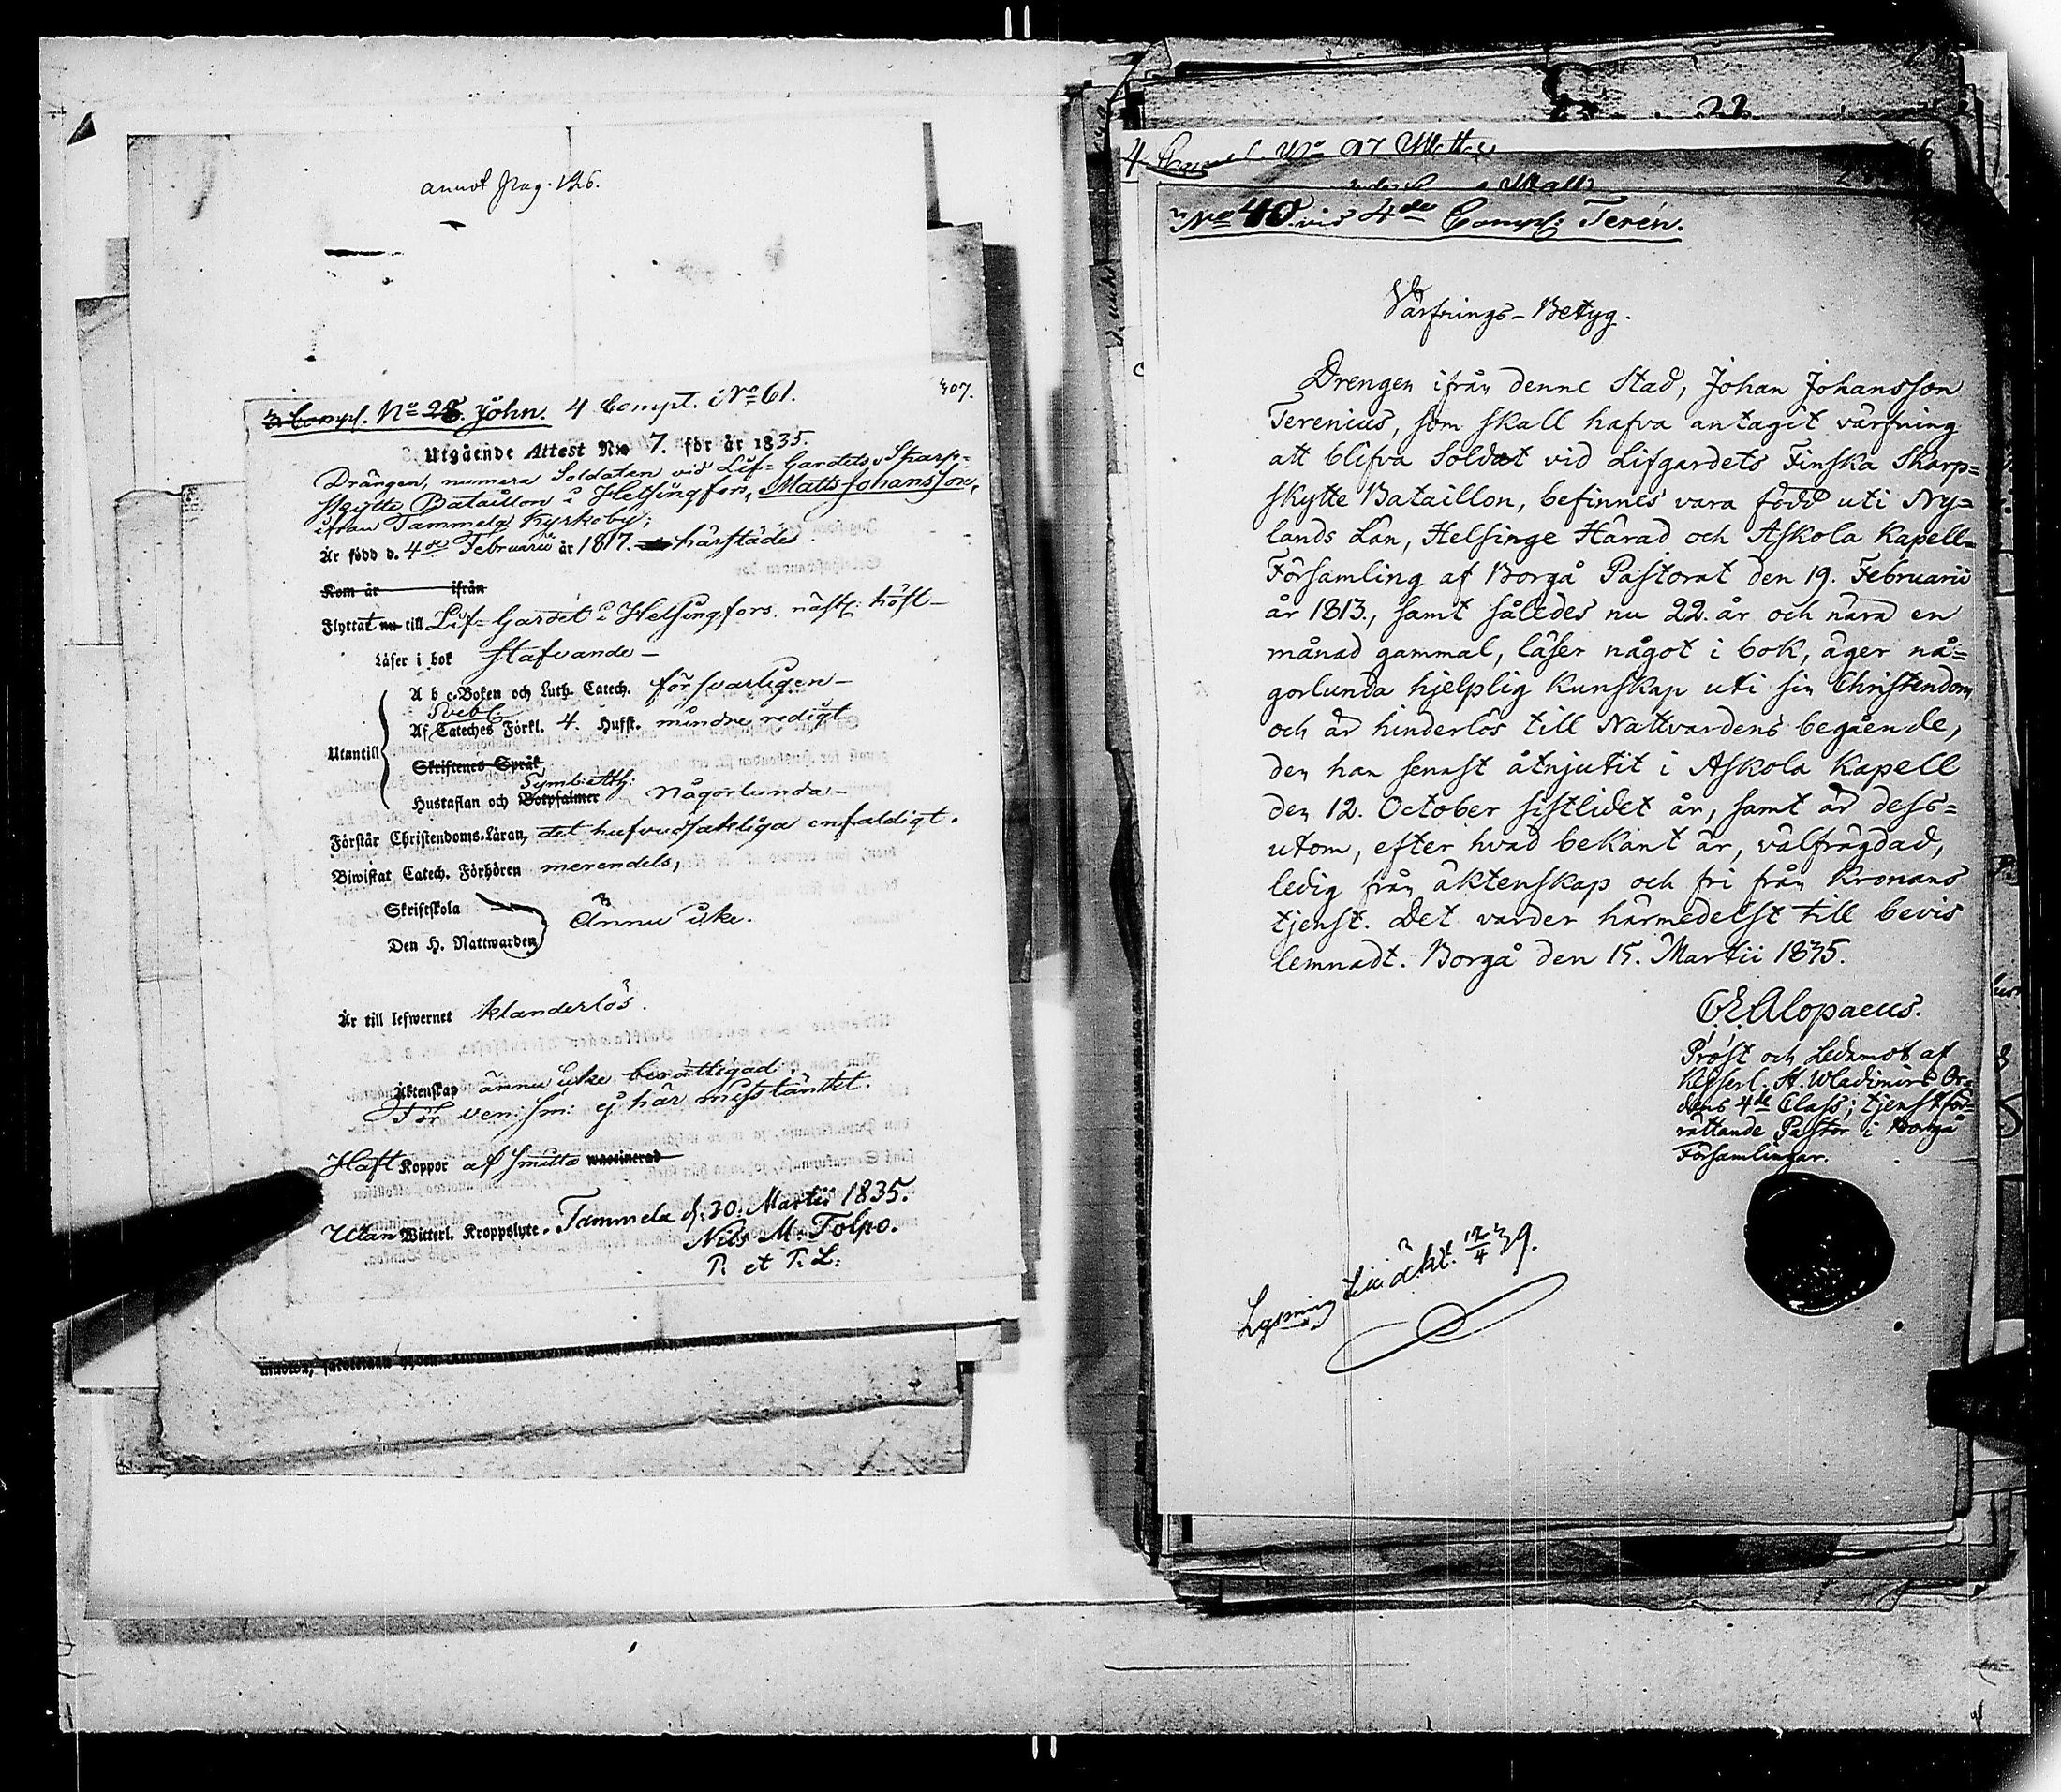 annot pag. 126.
307.
3 Comp. No 28. John. 4 Compt. No 61.
Utgående Attest No 7. för år 1835.
Drängen, numera Soldaten vid Lif-Gardets Skarp-
Skytte Bataillon i Helsingfors, Matts Johansson,
ifrån Tammela Kyrkoby;
Är född d. 4de Februarii år 1817. härstädes
Kom år ifrån
Flyttat nu till Lif-Gardet i Helsingfors, näst. höst-
Läser i bok stafvande-
A b c-Boken och Luth. Catech. försvarligen-
Svebel.
Af Cateches Förkl. 4. Hufst. mindre redigt
Utantill
Skriftenes Språk
Symb. Ath:
Hustaflan och Botpsalmer någorlunda-
Förstår Christendoms-Läran, det hufvudsakliga enfaldigt.
Biwistat Catech. Förhören merendels,
Skriftskola
Ännu icke.
Den H. Nattwarden
Är till lefwernet klanderlös.
Äktenskap ännu icke berättigad.
För ven: sm: ej här misstänkt.
Haft Koppor af smitta waccinerad
Utan Witterl. Kroppslyte. Tammela d. 20. Martii 1835.
Nils M. Tolpo.
P. et P. L.
22
4 No 97 Matts
No 40. vid 4de Comp: Terén.
Värfnings-Betyg.
Drengen ifrån denne Stad, Johan Johansson
Terenius, som skall hafva antagit värfning
att blifva Soldat vid Lifgardets Finska Skarp=
skytte Bataillon, befinnes vara född uti Ny=
lands Län, Helsinge Härad och Askola Kapell=
Församling af Borgå Pastorat den 19. Februarii
år 1813., samt således nu 22. år och nära en
månad gammal, läser något i bok, äger nå=
gorlunda hjelplig kunskap uti sin Christendom,
och är hinderlös till Nattvardens begående,
den han senast åtnjutit i Askola Kapell
den 12. October sistlidet år, samt är dess=
utom, efter hvad bekant är, välfrägdad,
ledig från äktenskap och fri från Kronans
tjenst. Det varder härmedelst till bevis
lemnadt. Borgå den 15. Martii 1835.
C E Alopaeus.
Prost och Ledamot af
Kejserl. St. Wladimirs Or=
dens 4de Class; tjenstför=
rättande Pastor i Borgå
Församlingar.
Lysning till äkt. 12/4 39.